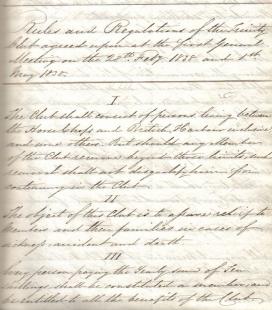 Rules and Regulations of the Trinity
Club agreed upon at the first general
Meeting on the 28th Feby 1838 and 1st
May 1838.
I
The Club shall consist of persons living between
the Horse and British Harbour inclusive
and none others. But should any Member
of the Club remove beyond those limits such
removal shall not disqualify him from
continuing in the Club.
II
The object of this Club is to afford relief to
Members and their families in cases of
sickness, accident and death.
III
Any person paying the Yearly sum of Ten
shillings shall be constituted a member, and
be entitled to all the benefits of the Club.